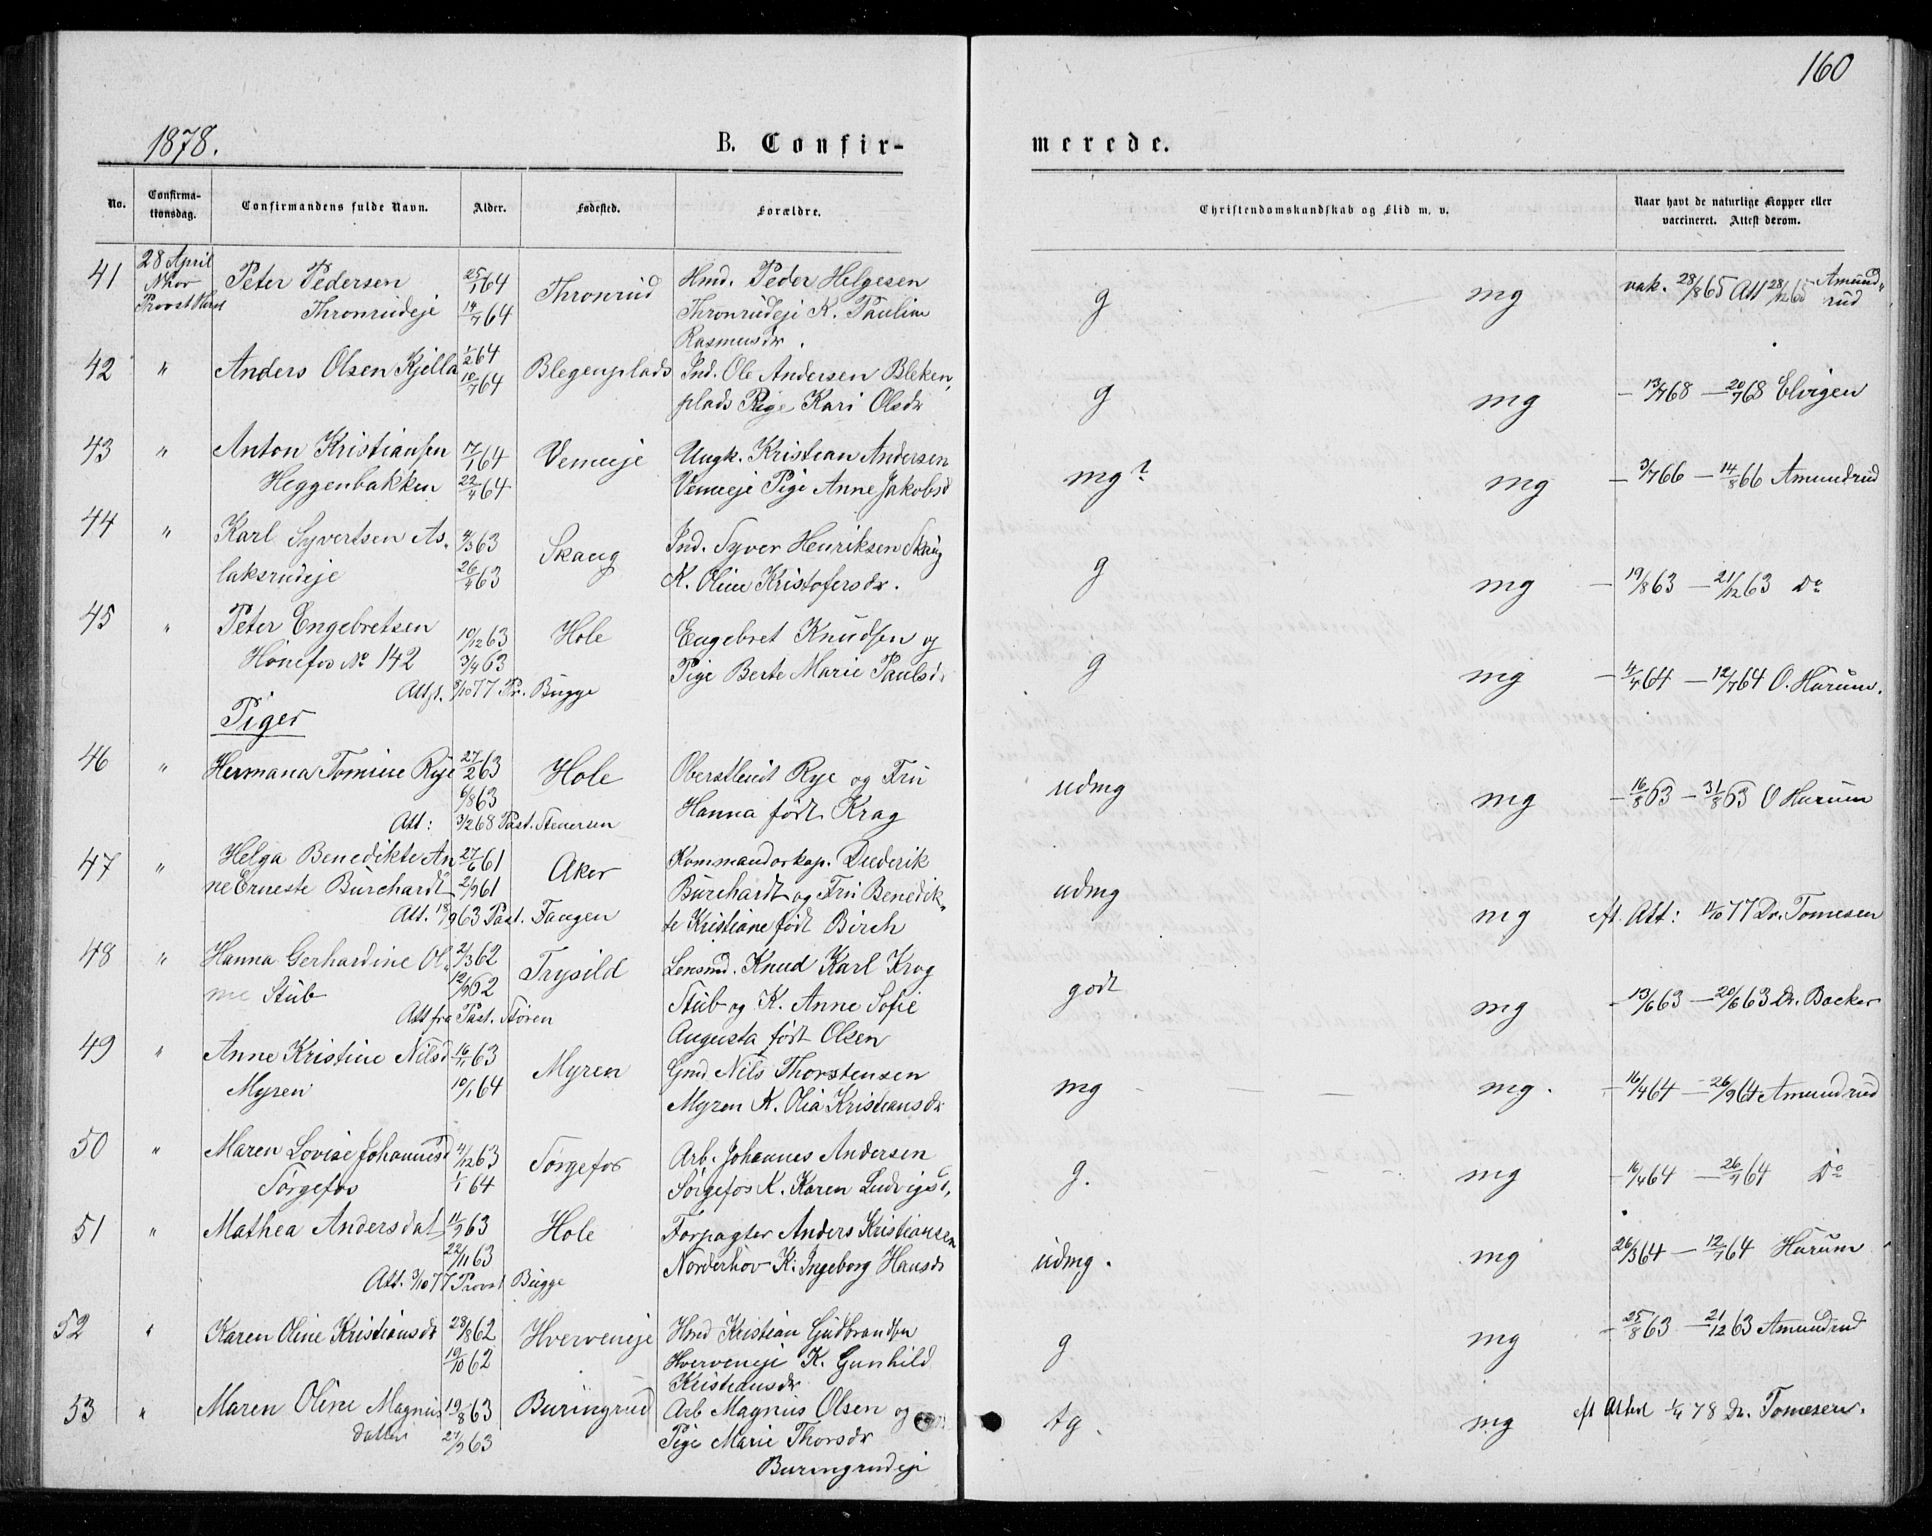 160
1878.
B. Confir-
merede.
No.
Confirma-
tionsdag.
Confirmandens fulde Navn.
Alder.
Fødested.
Forældre.
Christendomskundskab og Flid m. v.
Naar havt de naturlige Kopper eller
vaccineret. Attest derom.
41 28 April Peter Pedersen 25/1 64 Thronrud Hmd. Peder Helgesen g mg vak. 28/8 65 Att 28/12 65 Amund-
Nhov Thronrudeje 14/7 64 Thronrudeje K. Pauline rud
Provst Rasmusdr.
42 " Anders Olsen Kjella 1/2 64 Blegenplads Ind. Ole Andersen Bleken- g mg — 13/7 68 — 20/7 68 Elvigen
10/7 64 plads Pige Kari Olsdr
43 " Anton Kristiansen 17/1 64 Vemeje Ungk. Kristian Andersen mg? mg — 3/7 66 — 14/8 66 Amundrud
Heggenbakken 22/4 64 Vemeje Pige Anne Jakobsd
44 " Karl Syvertsen As- 4/3 63 Skaug Ind. Syver Henriksen Skaug g mg — 19/8 63 — 21/12 63 Do
laksrudeje 26/4 63 K. Oline Kristofersdr.
45 " Peter Engebretsen 10/12 63 Hole Engebret Knudsen og g mg — 4/4 64 — 12/7 64 O. Harum.
Hönefos No 142 3/4 63 Pige Berte Marie Paulsd.
Att. 8/10 77 Pr. Bugge
Piger
46 " Hermana Tomine Rye 27/2 63 Hole Oberstleut Rye og Fru udmg mg — 16/8 63 — 31/8 63 O Harum
6/8 63 Hanna født Krag
Att: 3/2 68 Past. Stenersen
47 " Helga Benedikte An 27/6 61 Aker Kommandorkap. Diderik udmg mg eft. Att: 11/10 77 Dr. Tomesen
ne Erneste Burchardt 2/9 61 Burchardt og Fru Benedik-
Att. 18/9 63 Past. Fangen te Kristiane født Birch
48 " Hanna Gerhardine Ol- 2/3 62 Trysild Lensmd. Knud Karl Krog godt mg — 13/6 63 — 20/6 63 Dr. Backer
ine Stub 12/9 62 Stub og K. Anne Sofie
Att fra Past. Støren Augusta født Olsen
49 " Anne Kristine Nilsd 16/11 63 Myren Gmd. Nils Thorstensen mg mg. — 16/4 64 — 26/9 64 Amundrud
Myren 10/1 64 Myren K. Olia Kristiansdr
50 " Maren Lovise Johannesd 11/12 63 Sørgefos Arb. Johannes Andersen g. mg — 16/4 64 — 26/9 64 Do
Sørgefos 1/1 64 Sørgefos K. Karen Ludvigsd,
51 " Mathea Andersdat 11/9 63 Hole Forpagter Anders Kristiansen udmg. mg 26/3 64 — 12/7 64 Harum
22/11 63 Norderhov K. Ingeborg Hansdr
Att. 9/10 77 Provst Bugge
52 " Karen Oline Kristiansdr 28/8 62 Hverveneje Hmd Kristian Gudbrandsen g mg — 25/8 63 — 21/12 63 Amundrud
19/10 62 Hverveneje K. Gunhild
Kristiansdr
53 " Maren Oline Magnus 19/8 63 Buringrud Arb Magnus Olsen og tg. mg eft Attest 1/4 78 Dr. Tomesen.
datter 27/9 63 Pige Marie Thorsdr
Buringrudeje